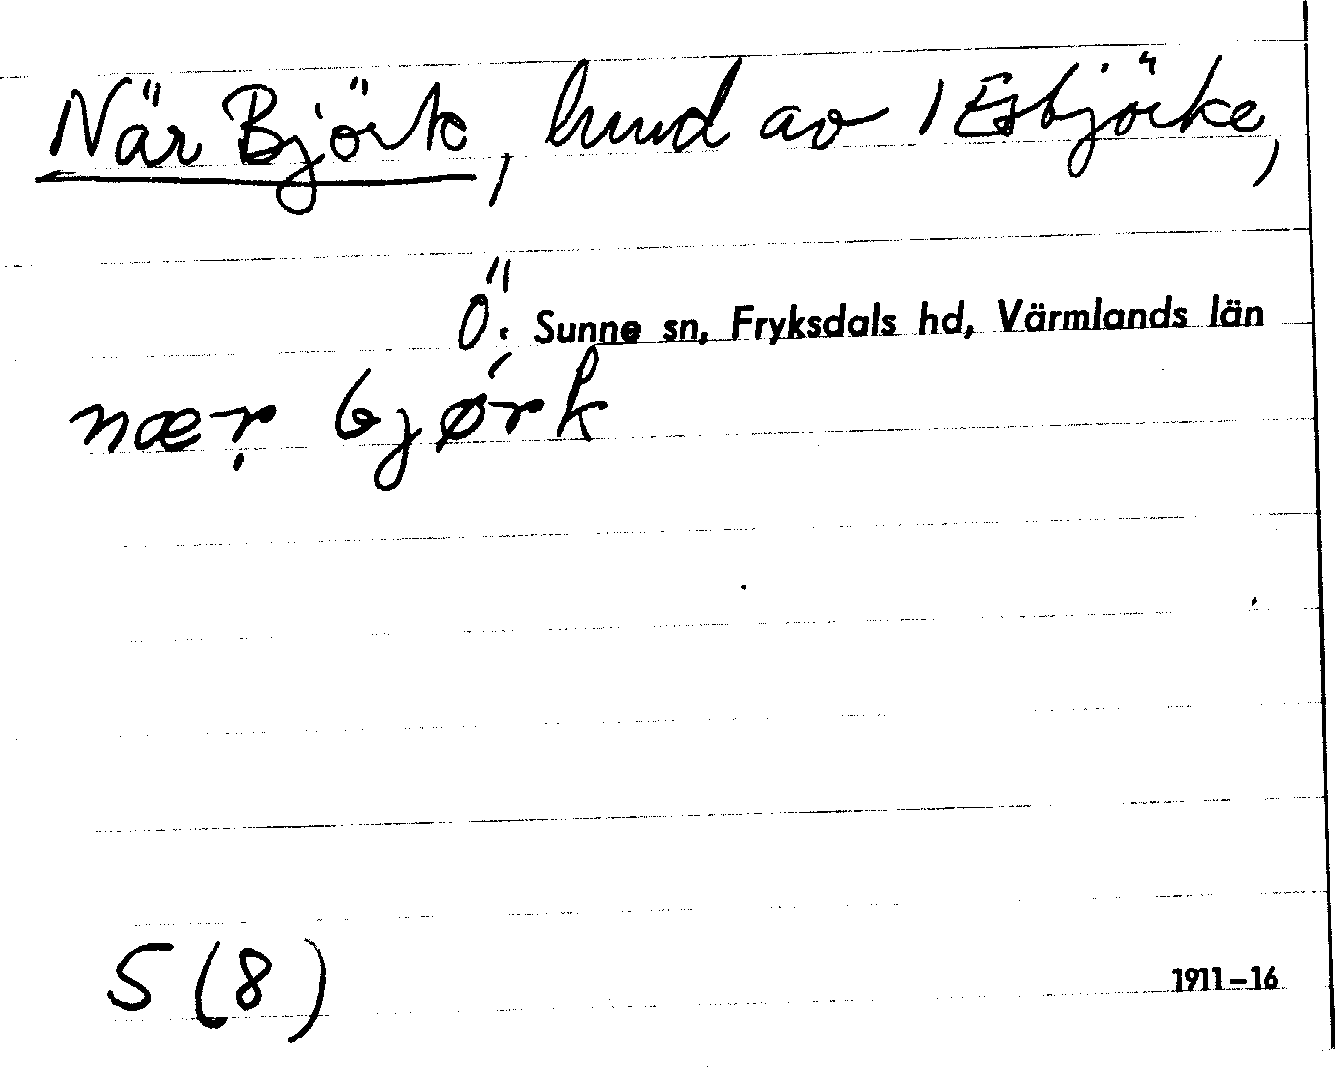 När Björk, hmd av 1 Esbjörke,
Ö. Sunne sn, Fryksdals hd, Värmlands län
næṛ bjǿrk
S (8)
1911–16